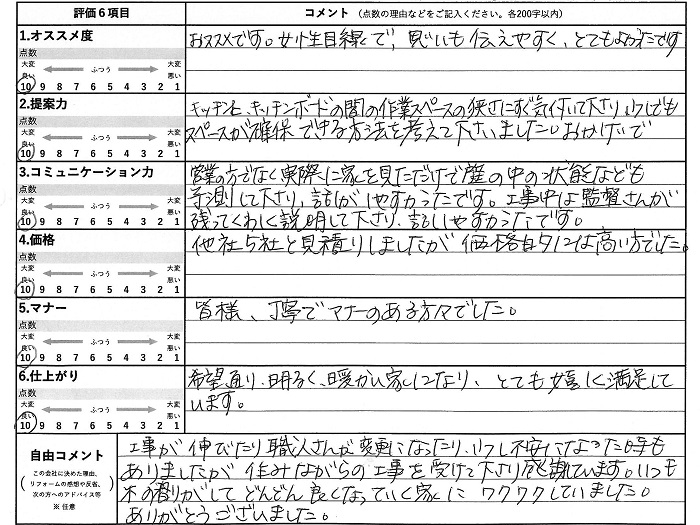 評価6項目
コメント (点数の理由などをご記入ください。各200字以内)
1.オススメ度
点数
大変良い
ふつう
大変悪い
10 9 8 7 6 5 4 3 2 1
おススメです。女性目線で、思いも伝えやすく、とてもよかったです
2.提案力
点数
大変良い
ふつう
大変悪い
10 9 8 7 6 5 4 3 2 1
キッチンと、キッチンボードの間の作業スペースの狭さにすぐ気付いて下さり、少しでも
スペースが確保できる方法を考えて下さいました。おかげで
3.コミュニケーション力
点数
大変良い
ふつう
大変悪い
10 9 8 7 6 5 4 3 2 1
営業の方でなく実際に家を見ただけで壁の中の状態なども
予測して下さり、話がしやすかったです。工事中は監督さんが
残ってくわしく説明して下さり、話しやすかったです。
4.価格
点数
大変良い
ふつう
大変悪い
10 9 8 7 6 5 4 3 2 1
他社5社と見積りしましたが価格自体は高い方でした。
5.マナー
点数
大変良い
ふつう
大変悪い
10 9 8 7 6 5 4 3 2 1
皆様、丁寧でマナーのある方々でした。
6.仕上がり
点数
大変良い
ふつう
大変悪い
10 9 8 7 6 5 4 3 2 1
希望通り、明るく、暖かい家になり、とても嬉しく満足して
います。
自由コメント
この会社に決めた理由、
リフォームの感想や反省、
次の方へのアドバイス等
※ 任意
工事が伸びたり職人さんが変更になったり、少し不安になった時も
ありましたが住みながらの工事を受けて下さり感謝しています。いつも
木の香りがしてどんどん良くなっていく家にワクワクしていました。
ありがとうございました。